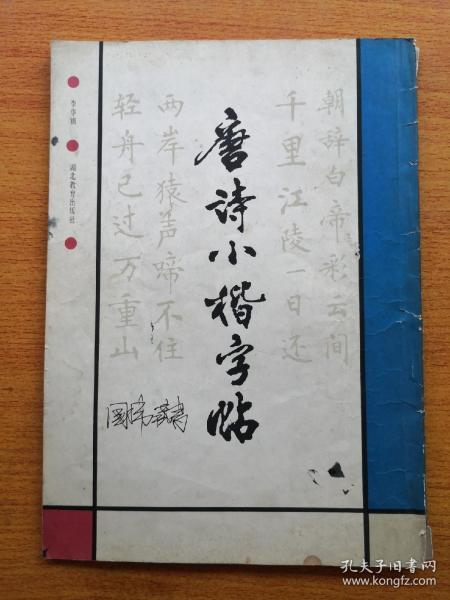 唐诗小楷字帖
朝辞白帝彩云间
千里江陵一日还
两岸猿声啼不住
轻舟已过万重山
湖北教育出版社
孔夫子旧书网
www.kongfz.com